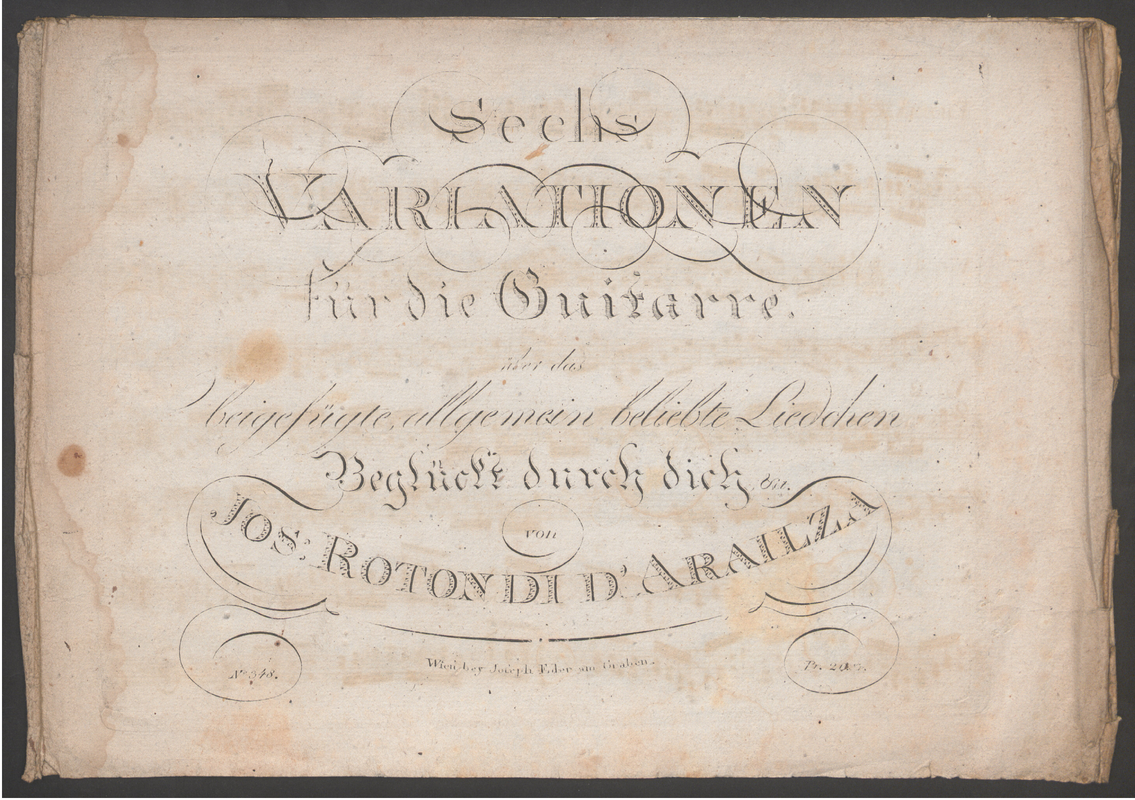 Sechs
VARIATIONEN
für die Guitarre.
über das
beigefügte, allgemein beliebte Liedchen
Beglückt durch dich etc.
von
JOS: ROTONDI D'ARAILZA
No 348.
Wien, bey Joseph Eder am Graben.
Pr. 20